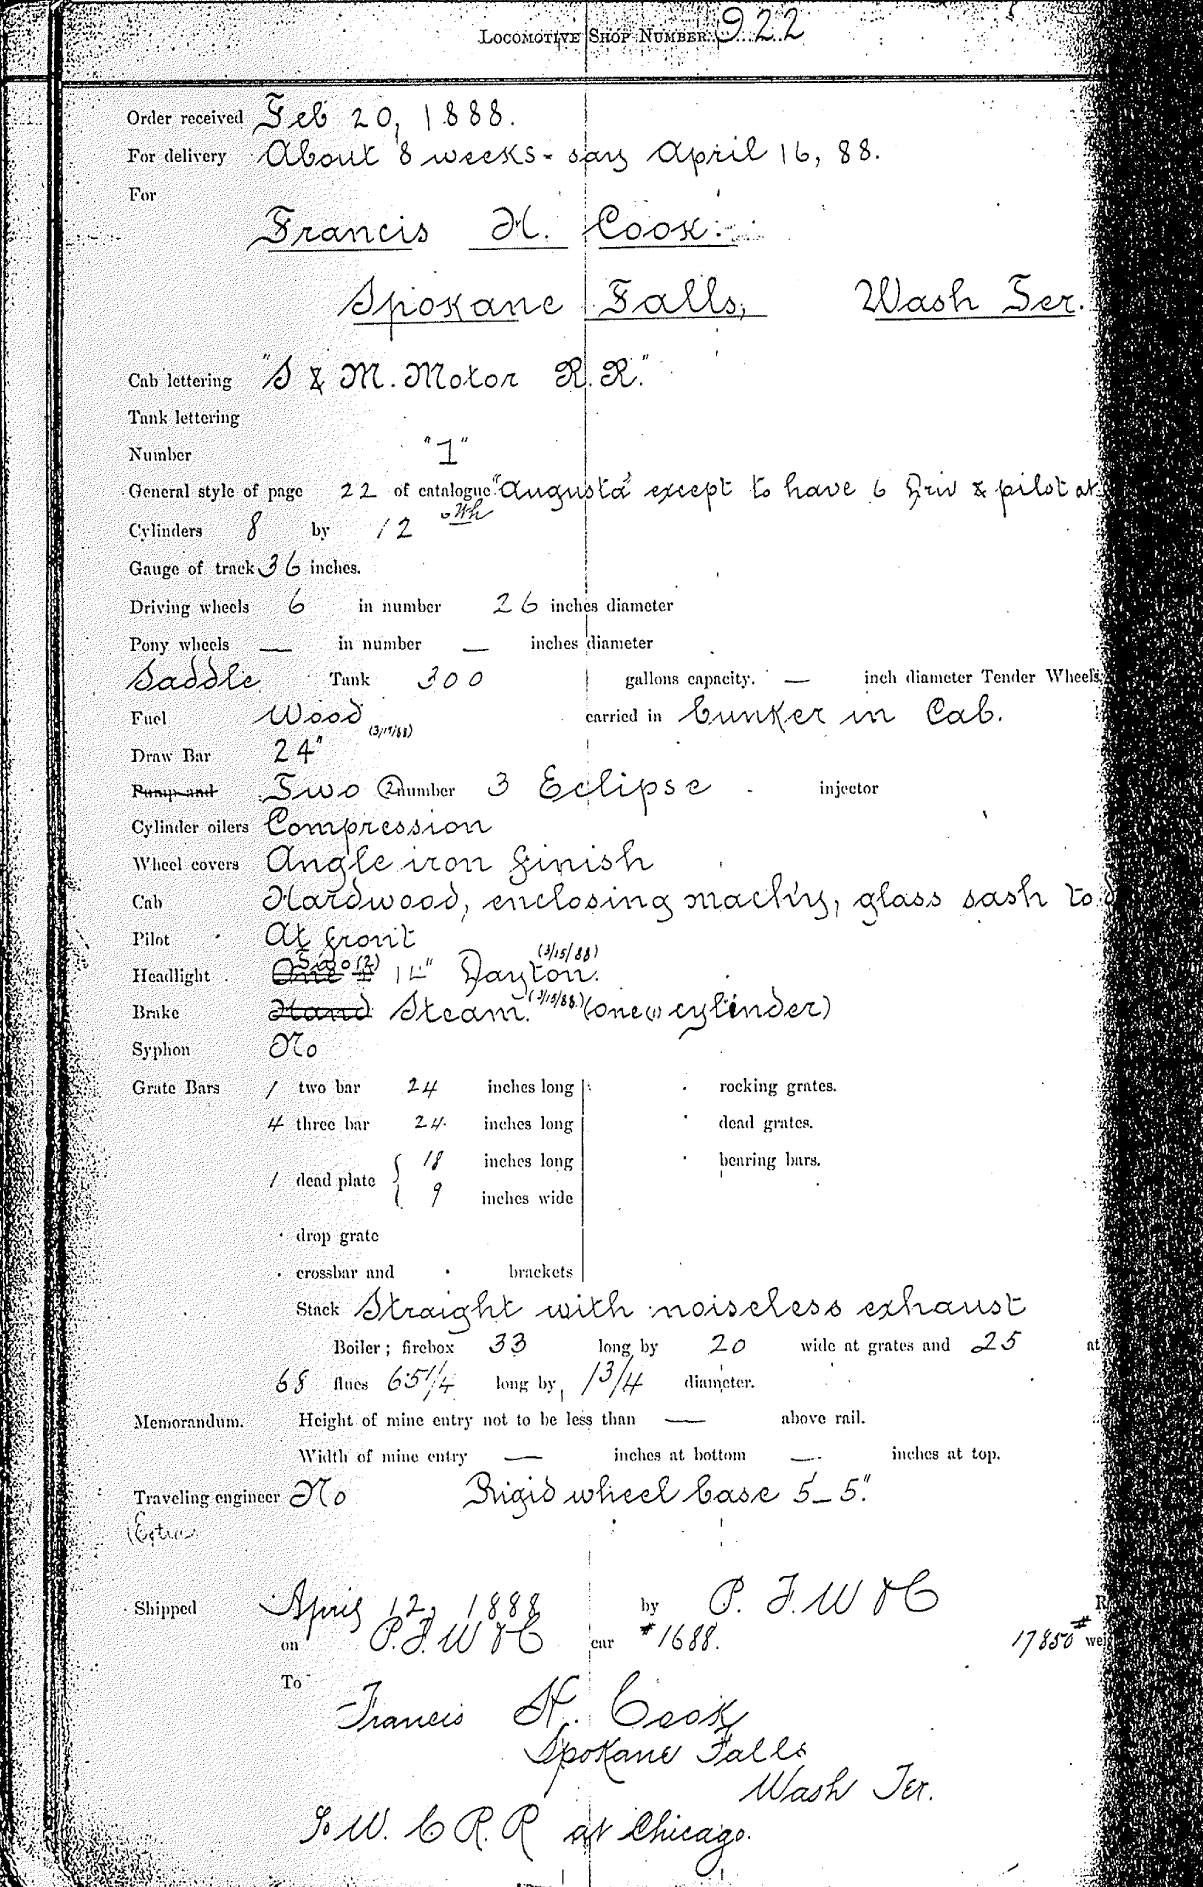 LOCOMOTIVE SHOP NUMBER 922
Order received Feb 20, 1888.
For delivery About 8 weeks - say April 16, 88.
For
Francis H. Cook.
Spokane Falls, Wash Ter.
Cab lettering "S & M. Motor R. R."
Tank lettering
Number "1"
General style of page 22 of catalogue "Augusta" except to have 6 Driv & pilot at
Cylinders 8 by 12
Gauge of track 36 inches.
Driving wheels 6 in number 26 inches diameter
Pony wheels — in number — inches diameter
Saddle Tank 300 gallons capacity. — inch diameter Tender Wheels.
Fuel Wood carried in bunker in Cab.
(3/17/88)
Draw Bar 24"
Pump and Two (2) number 3 Eclipse injector
Cylinder oilers Compression
Wheel covers Angle iron finish
Cab Hardwood, enclosing mach'y, glass sash to
Pilot At front
(3/15/88)
Headlight One Two (2) 14" Dayton.
Brake Hand Steam. (3/15/88) (one (1) cylinder)
Syphon No
Grate Bars 1 two bar 24 inches long rocking grates.
4 three bar 24 inches long dead grates.
1 dead plate { 18 inches long bearing bars.
9 inches wide
drop grate
crossbar and brackets
Stack Straight with noiseless exhaust
Boiler; firebox 33 long by 20 wide at grates and 25 at
68 flues 65 1/4 long by 1 3/4 diameter.
Memorandum. Height of mine entry not to be less than — above rail.
Width of mine entry — inches at bottom — inches at top.
Traveling engineer No Rigid wheel base 5-5".
(Extra
Shipped April 12, 1888 by P. F. W & C R
on P. F. W & C car #1688. 17850# wei
To
Francis H. Cook
Spokane Falls
Wash Ter.
To W. C R. R at Chicago.